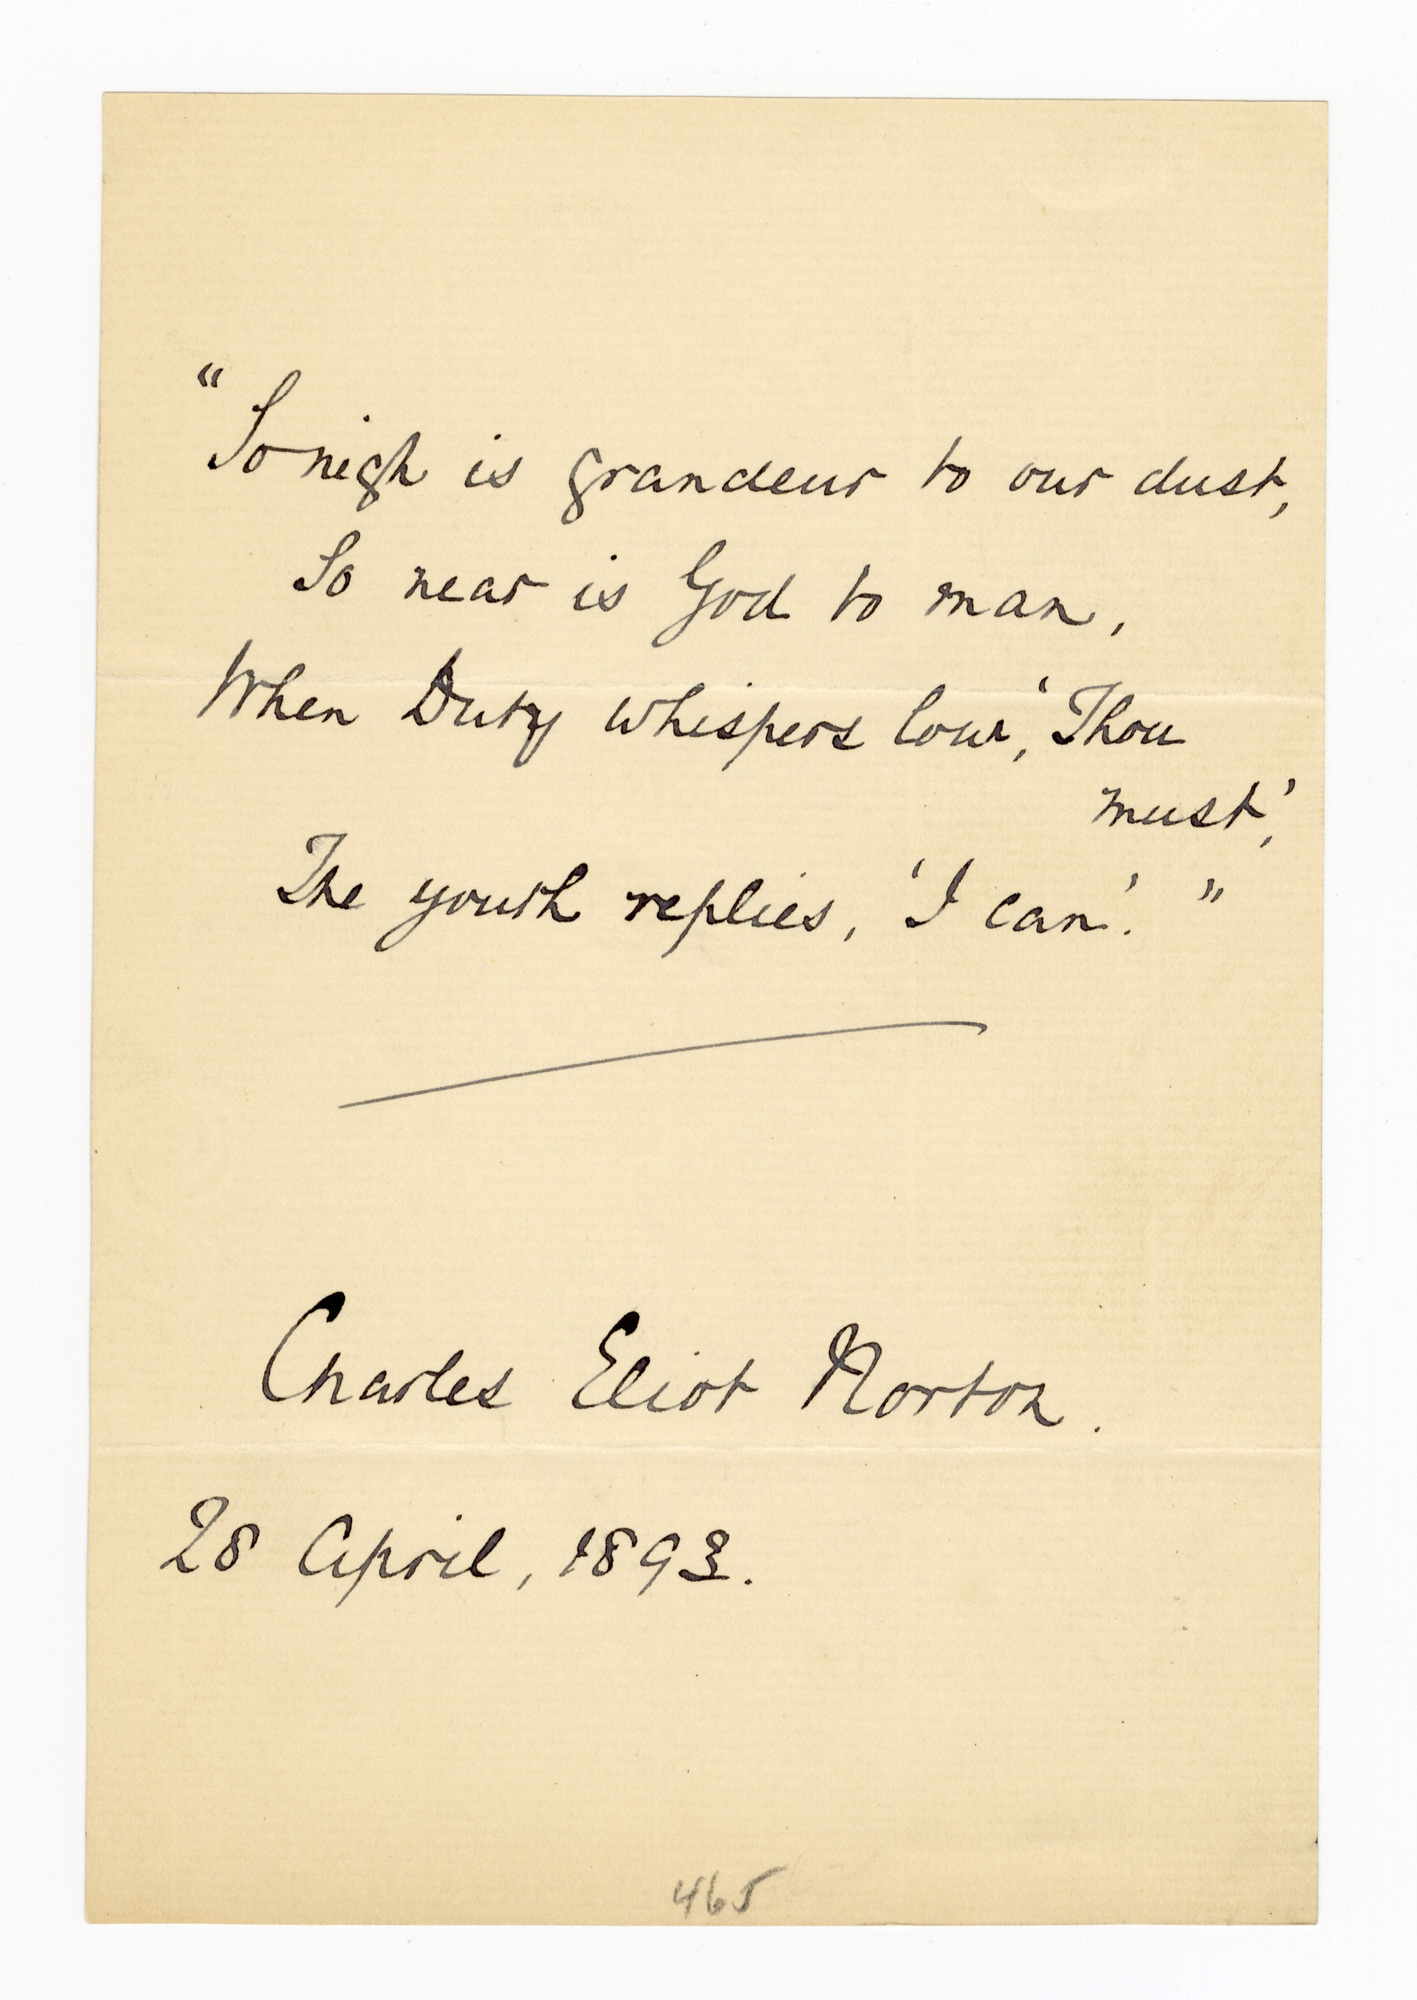 “So nigh is grandeur to our dust,
So near is God to man,
When Duty whispers low, ‘Thou
must’,
The youth replies, ‘I can’.”
Charles Eliot Norton.
28 April, 1893.
465